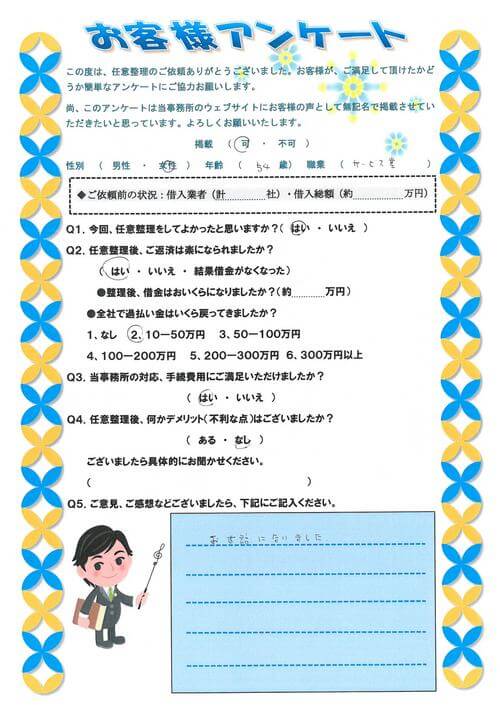 お客様アンケート
この度は、任意整理のご依頼ありがとうございました。お客様が、ご満足して頂けたかど
うか簡単なアンケートにご協力お願いします。
尚、このアンケートは当事務所のウェブサイトにお客様の声として無記名で掲載させてい
ただきたいと思っています。よろしくお願いいたします。
掲載 ( 可 ・ 不可 )
性別 ( 男性 ・ 女性 ) 年齢 ( 54 歳) 職業 ( サービス業 )
◆ご依頼前の状況:借入業者(計 社)・借入総額(約 万円)
Q1. 今回、任意整理をしてよかったと思いますか?( はい ・ いいえ )
Q2. 任意整理後、ご返済は楽になられましたか?
( はい ・ いいえ ・ 結果借金がなくなった)
●整理後、借金はおいくらになりましたか?(約 万円)
●全社で過払い金はいくら戻ってきましたか?
1、なし 2、10ー50万円 3、50ー100万円
4、100ー200万円 5、200ー300万円 6、300万円以上
Q3. 当事務所の対応、手続費用にご満足いただけましたか?
( はい ・ いいえ )
Q4. 任意整理後、何かデメリット(不利な点)はございましたか?
( ある ・ なし )
ございましたら具体的にお聞かせください。
( )
Q5. ご意見、ご感想などございましたら、下記にご記入ください。
お世話になりました